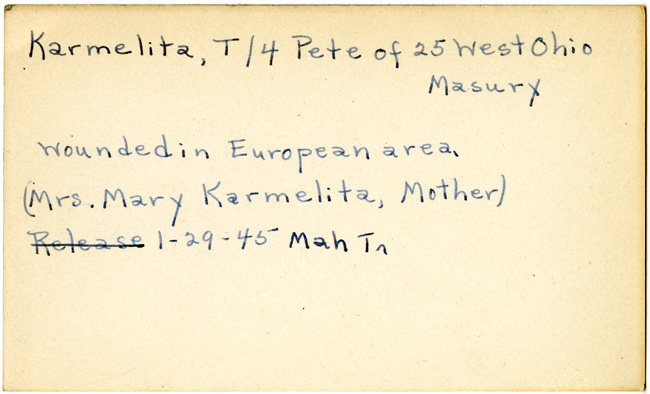 Karmelita, T/4 Pete of 25 West Ohio
Masury
wounded in European area.
(Mrs. Mary Karmelita, Mother)
Release 1-29-45 Mah Tr